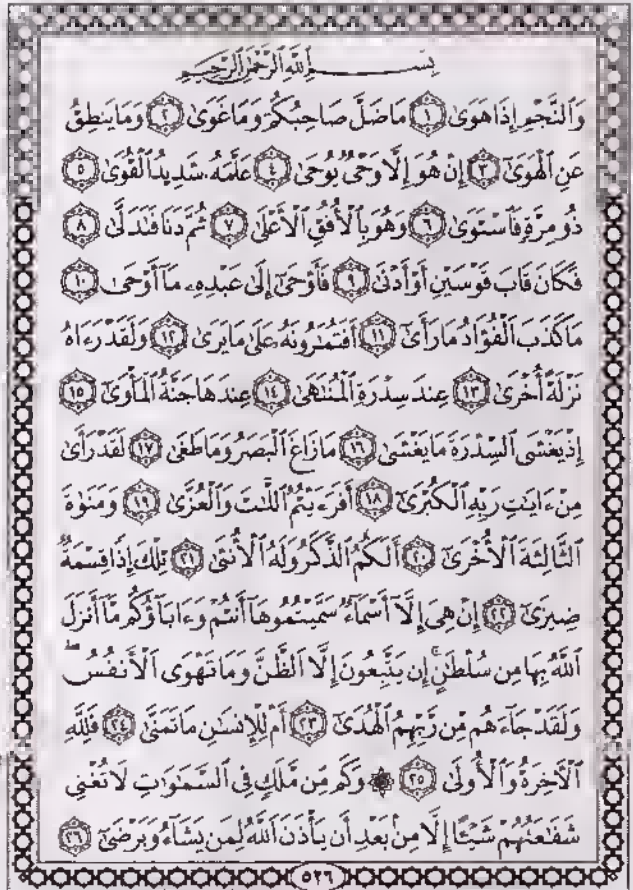 بِسْمِ ٱللَّهِ ٱلرَّحْمَٰنِ ٱلرَّحِيمِ
وَٱلنَّجْمِ إِذَا هَوَىٰ ١ مَا ضَلَّ صَاحِبُكُمْ وَمَا غَوَىٰ ٢ وَمَا يَنطِقُ
عَنِ ٱلْهَوَىٰٓ ٣ إِنْ هُوَ إِلَّا وَحْىٌ يُوحَىٰ ٤ عَلَّمَهُۥ شَدِيدُ ٱلْقُوَىٰ ٥
ذُو مِرَّةٍ فَٱسْتَوَىٰ ٦ وَهُوَ بِٱلْأُفُقِ ٱلْأَعْلَىٰ ٧ ثُمَّ دَنَا فَتَدَلَّىٰ ٨
فَكَانَ قَابَ قَوْسَيْنِ أَوْ أَدْنَىٰ ٩ فَأَوْحَىٰٓ إِلَىٰ عَبْدِهِۦ مَآ أَوْحَىٰ ١٠
مَا كَذَبَ ٱلْفُؤَادُ مَا رَأَىٰٓ ١١ أَفَتُمَٰرُونَهُۥ عَلَىٰ مَا يَرَىٰ ١٢ وَلَقَدْ رَءَاهُ
نَزْلَةً أُخْرَىٰ ١٣ عِندَ سِدْرَةِ ٱلْمُنتَهَىٰ ١٤ عِندَهَا جَنَّةُ ٱلْمَأْوَىٰٓ ١٥
إِذْ يَغْشَى ٱلسِّدْرَةَ مَا يَغْشَىٰ ١٦ مَا زَاغَ ٱلْبَصَرُ وَمَا طَغَىٰ ١٧ لَقَدْ رَأَىٰ
مِنْ ءَايَٰتِ رَبِّهِ ٱلْكُبْرَىٰٓ ١٨ أَفَرَءَيْتُمُ ٱللَّٰتَ وَٱلْعُزَّىٰ ١٩ وَمَنَوٰةَ
ٱلثَّالِثَةَ ٱلْأُخْرَىٰٓ ٢٠ أَلَكُمُ ٱلذَّكَرُ وَلَهُ ٱلْأُنثَىٰ ٢١ تِلْكَ إِذًا قِسْمَةٌ
ضِيزَىٰٓ ٢٢ إِنْ هِىَ إِلَّآ أَسْمَآءٌ سَمَّيْتُمُوهَآ أَنتُمْ وَءَابَآؤُكُم مَّآ أَنزَلَ
ٱللَّهُ بِهَا مِن سُلْطَٰنٍ ۚ إِن يَتَّبِعُونَ إِلَّا ٱلظَّنَّ وَمَا تَهْوَى ٱلْأَنفُسُ ۖ
وَلَقَدْ جَآءَهُم مِّن رَّبِّهِمُ ٱلْهُدَىٰٓ ٢٣ أَمْ لِلْإِنسَٰنِ مَا تَمَنَّىٰ ٢٤ فَلِلَّهِ
ٱلْءَاخِرَةُ وَٱلْأُولَىٰ ٢٥ ۞ وَكَم مِّن مَّلَكٍ فِى ٱلسَّمَٰوَٰتِ لَا تُغْنِى
شَفَٰعَتُهُمْ شَيْـًٔا إِلَّا مِنۢ بَعْدِ أَن يَأْذَنَ ٱللَّهُ لِمَن يَشَآءُ وَيَرْضَىٰٓ ٢٦
٥٢٦